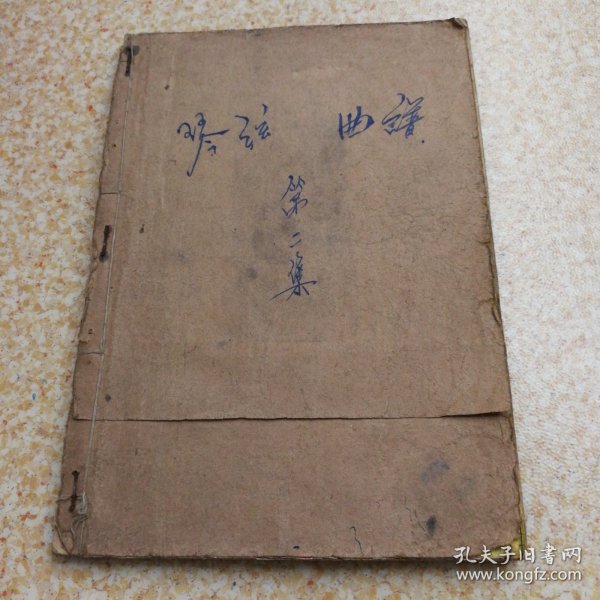 琴弦 曲谱
第二集
孔夫子旧书网
www.kongfz.com